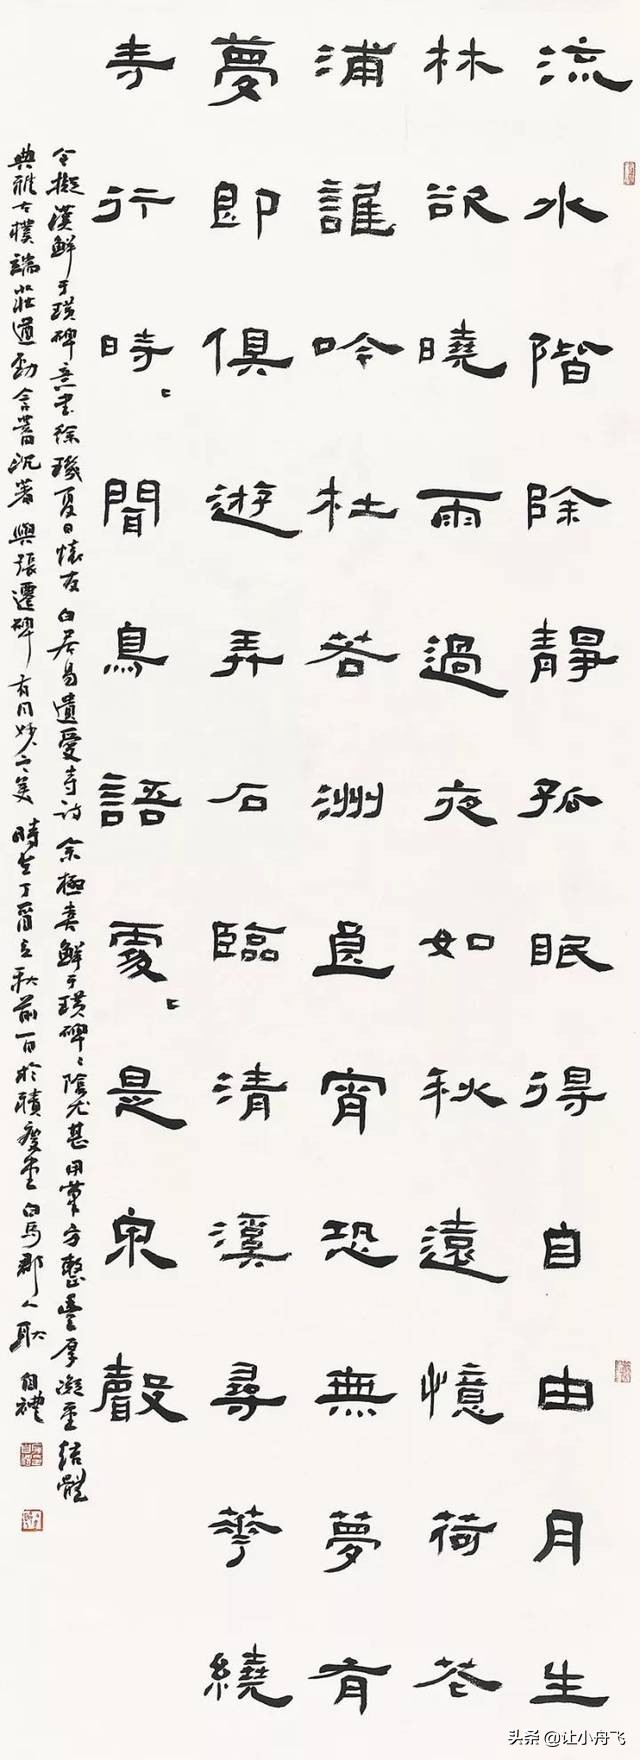 流水階除靜孤眠得自由月生
林欲曉雨過夜如秋遠憶荷花
浦誰吟杜若洲良宵恐無夢有
夢即俱遊弄石臨清溪尋華繞
寺行時〻聞鳥語處〻是泉聲
今擬漢鮮于璜碑意書徐璣夏日懷友 白居易遺愛寺詩 余極喜鮮于璜碑〻陰尤甚 用筆方整豐厚凝重 結體
典雅古樸端莊遒勁含蓄沉著 與張遷碑有同妙之美 時在丁酉立秋前一日於 堂 白馬郡人耿自禮
头条 @让小舟飞